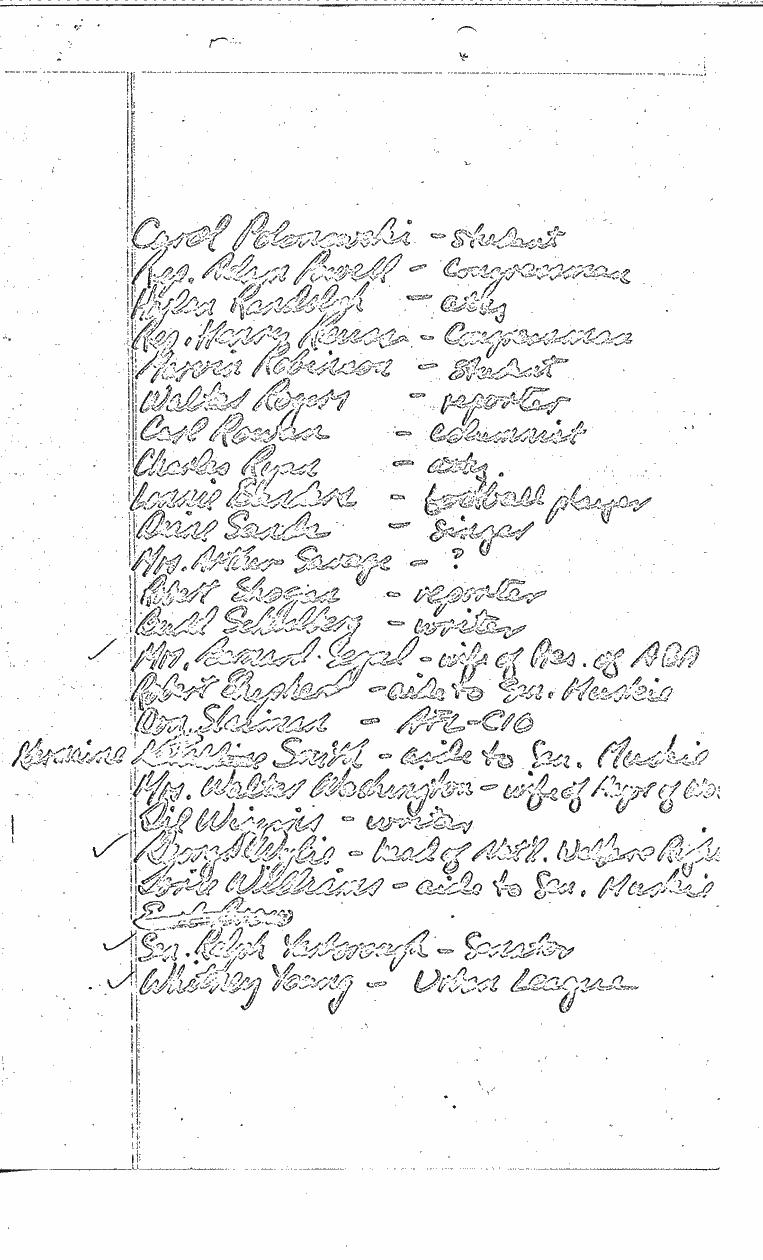 Carol Polonowski - student
Rep. Adam Powell - Congressman
Randolph - atty
Rep. Henry Reuss - Congressman
Marvin Robinson - student
Walter Rogers - reporter
Carl Rowan - columnist
Charles Ryan - atty.
Lonnie - football player
Sande - singer
Mrs. Arthur Savage - ?
Robert Shogan - reporter
Budd Schulberg - writer
✓ Mrs. Bernard Segal - wife of Pres. of ABA
Robert Shepherd - aide to Sen. Muskie
Don Slaiman - AFL-CIO
Smith - aide to Sen. Muskie
Mrs. Walter Washington - wife of Mayor of
- writer
✓ Wylie - head of Nat'l. Welfare
Williams - aide to Sen. Muskie
✓ Sen. Ralph Yarborough - Senator
✓ Whitney Young - Urban League